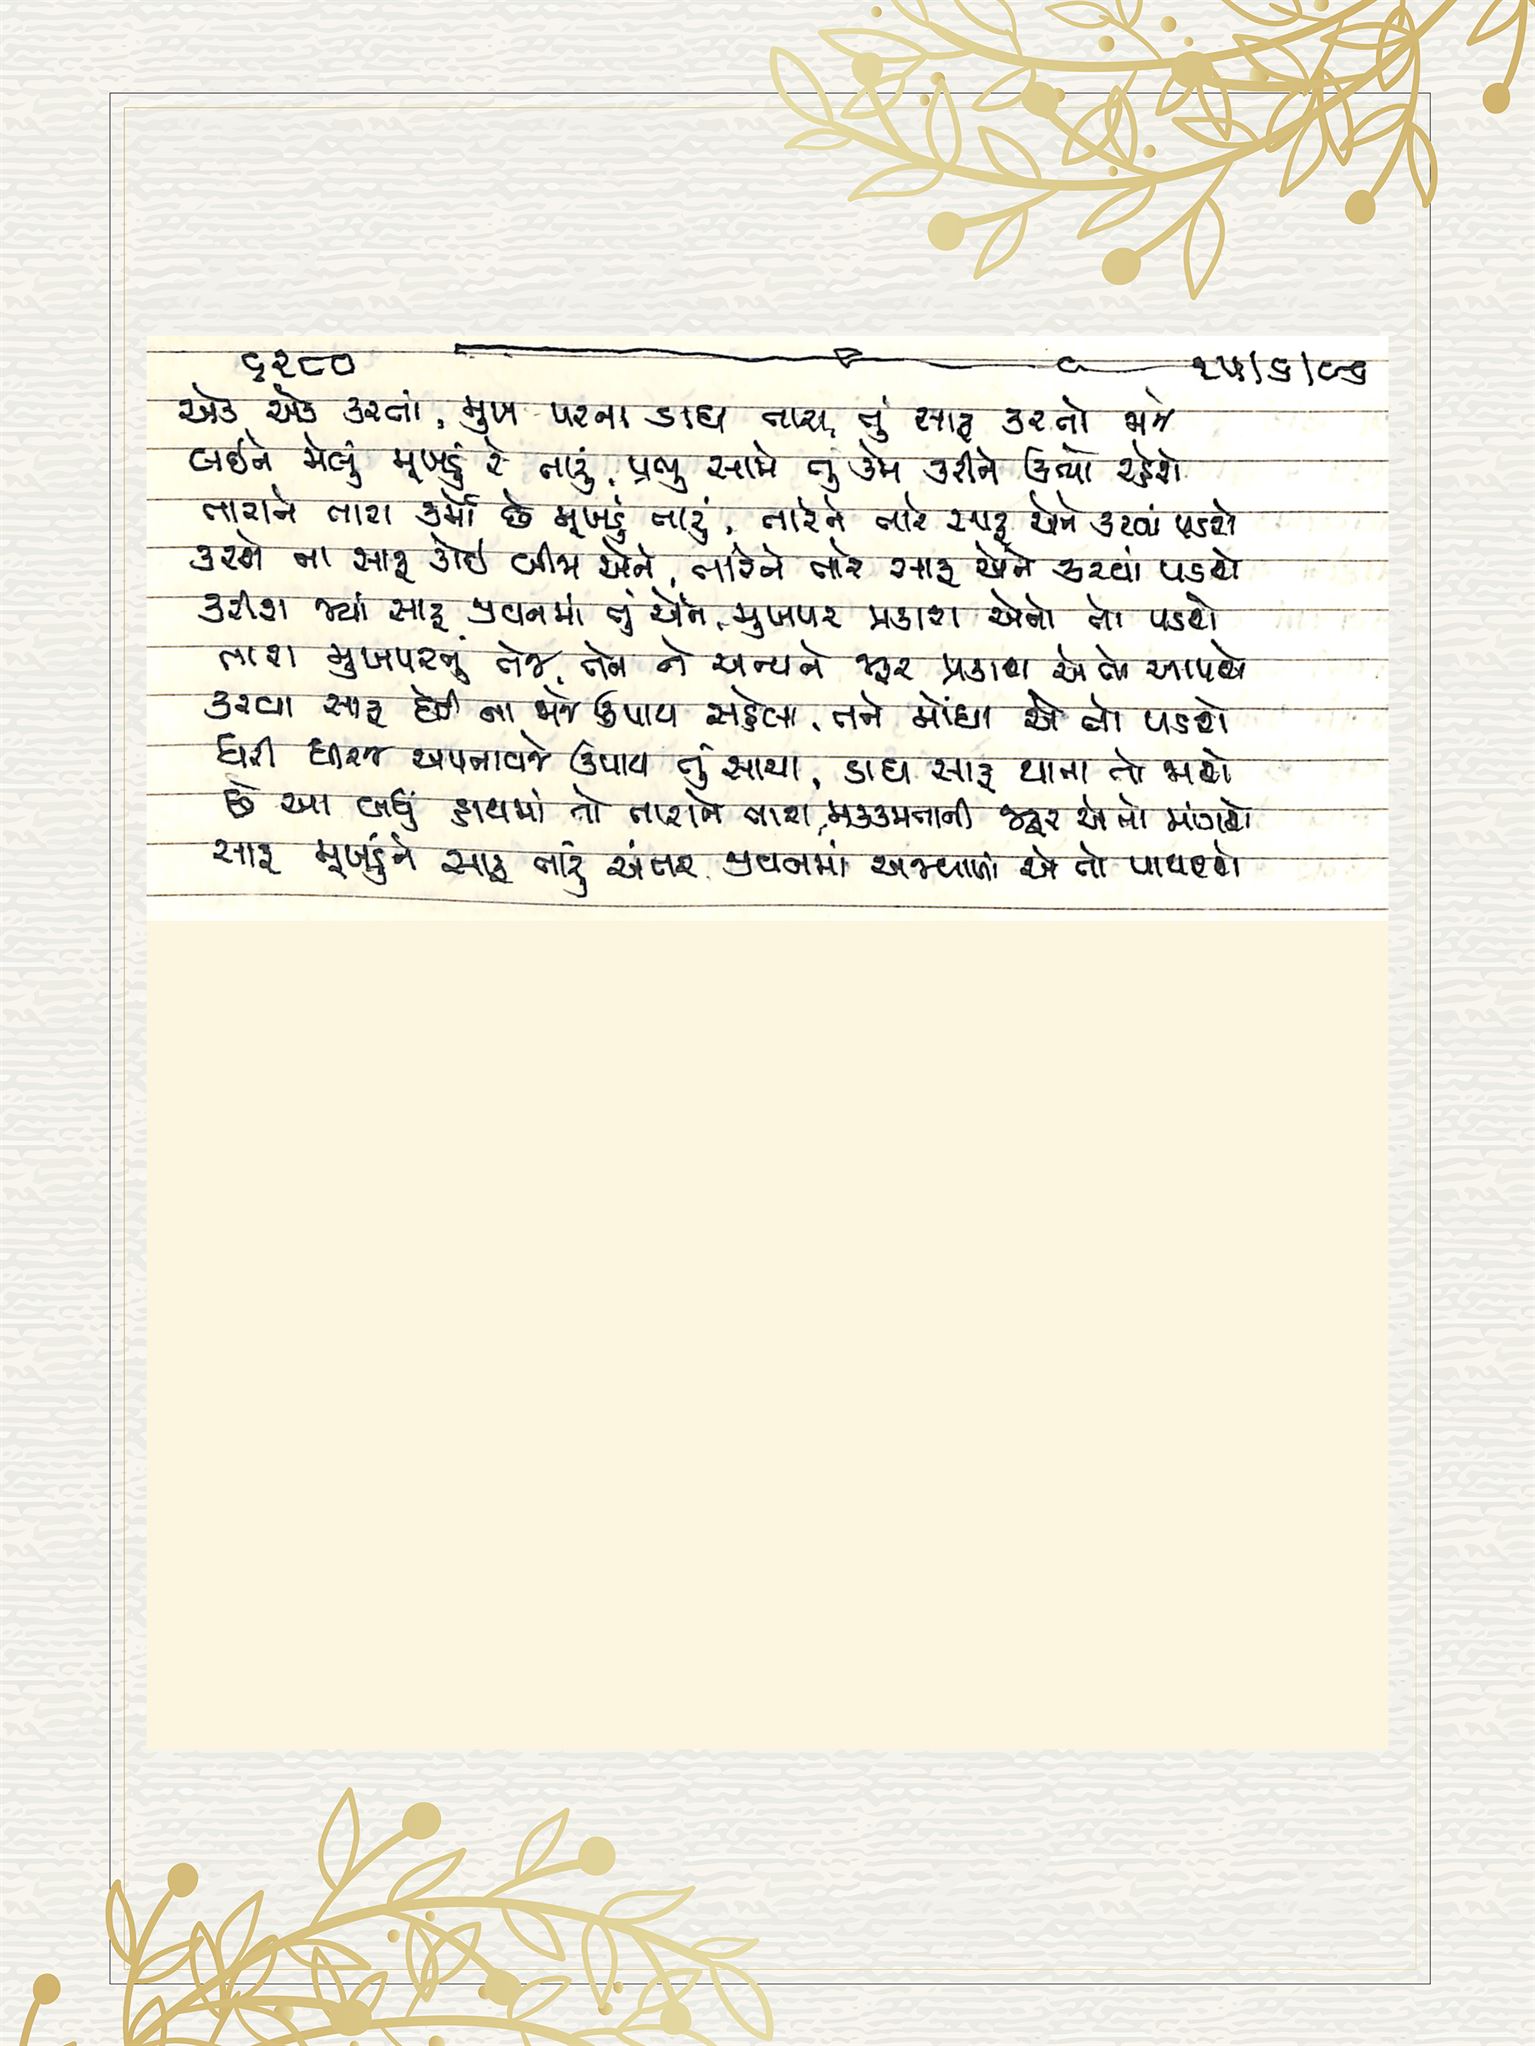 ૬૨૮૦ ૨૫/૬/૯૬
એક એક કરતાં, મુખ પરના ડાઘ તારા, તું સાફ કરતો જાજે
લઈને મેલું મૂખડું રે તારું, પ્રભુ સામે તું કેમ કરીને ઊભો રહેશે
તારાને તારા કર્મો છે મૂખડું તારું, તારેને તારે સાફ એને કરવાં પડશે
કરશે ના સાફ કોઈ બીજા એને, તારેને તારે સાફ એને કરવાં પડશે
કરીશ જ્યાં સાફ જીવનમાં તું એને, મુખપર પ્રકાશ એનો તો પડશે
તારા મુખપરનું તેજ, તને ને અન્યને જરૂર પ્રકાશ એ તો આપશે
કરવા સાફ ના ઉપાય સહેલા, તને મોંઘા એ તો પડશે
ધરી ધીરજ અપનાવજે ઉપાય તું સાચા, ડાઘ સાફ થાતા તો જાશે
છે આ બધું હાથમાં તો તારાને તારા, મક્કમતાની જરૂર એ તો માંગશે
સાફ મૂખડુંને સાફ તારું અંતર જીવનમાં અજવાળાં એ તો પાથરશે